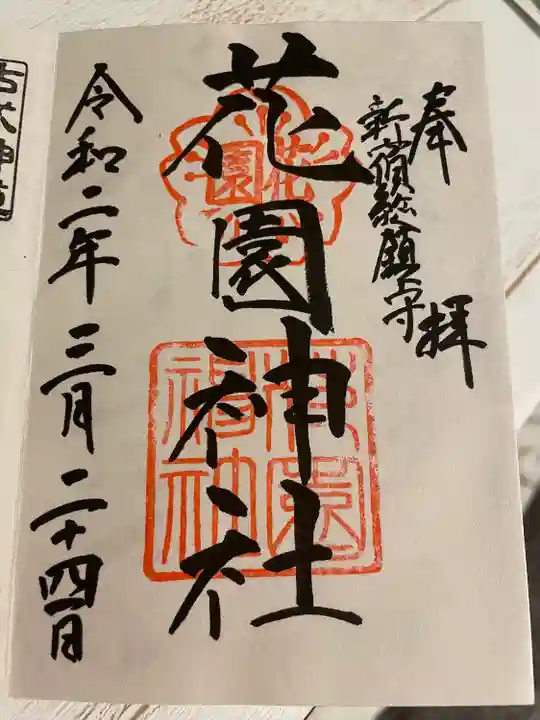 奉拝
新宿総鎮守
花園神社
花園
花園神社
令和二年三月二十四日